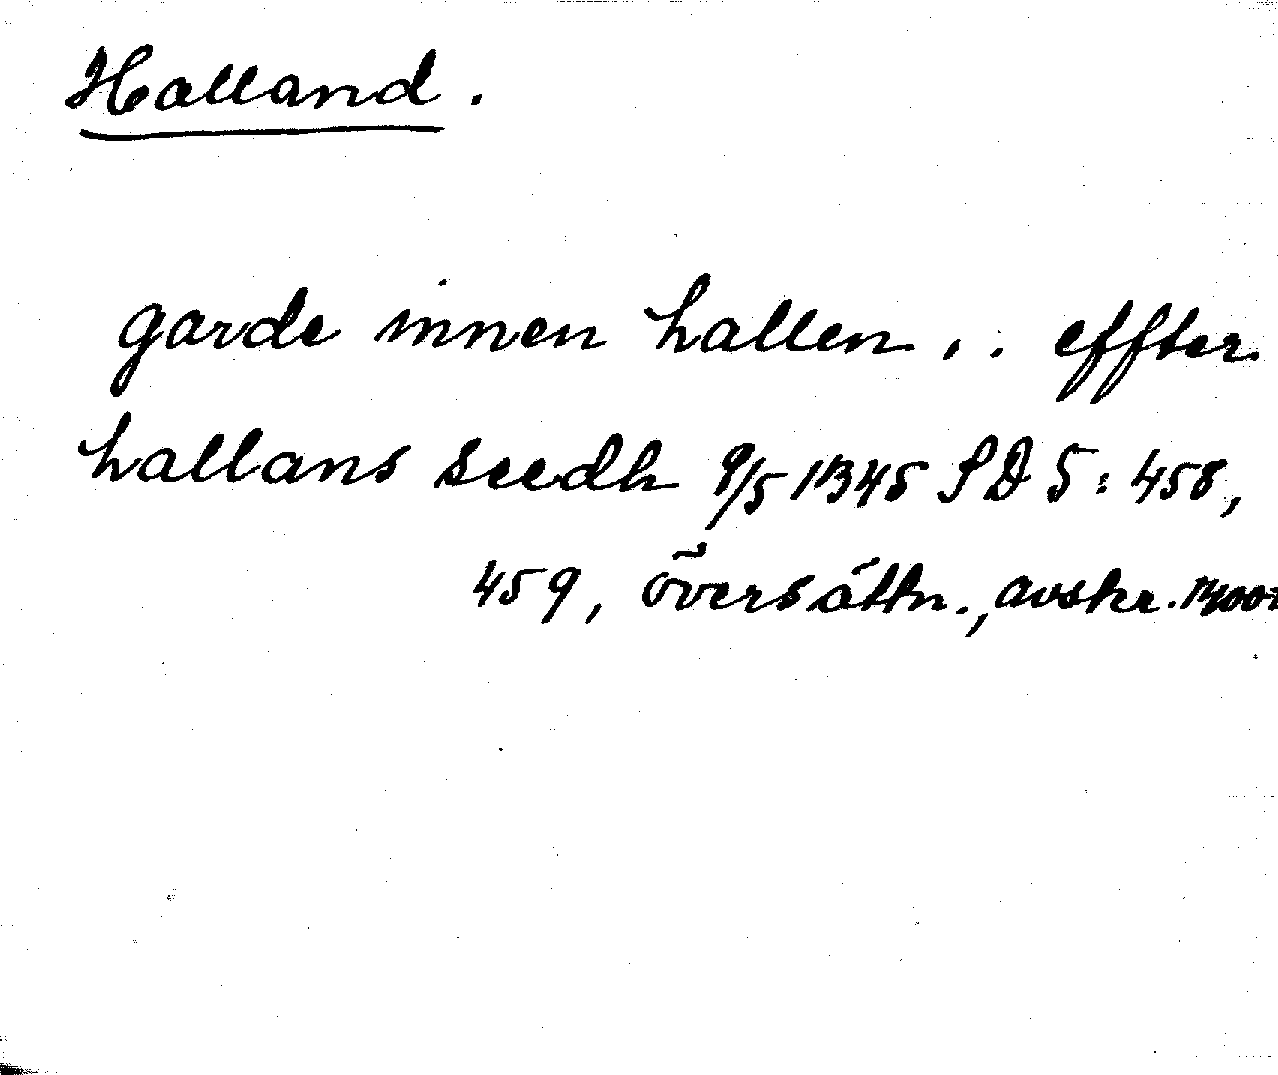 Halland.
garde innen hallen . . . effter
hallans seedh 9/5 1345 SD 5: 458,
459, översättn., avskr.